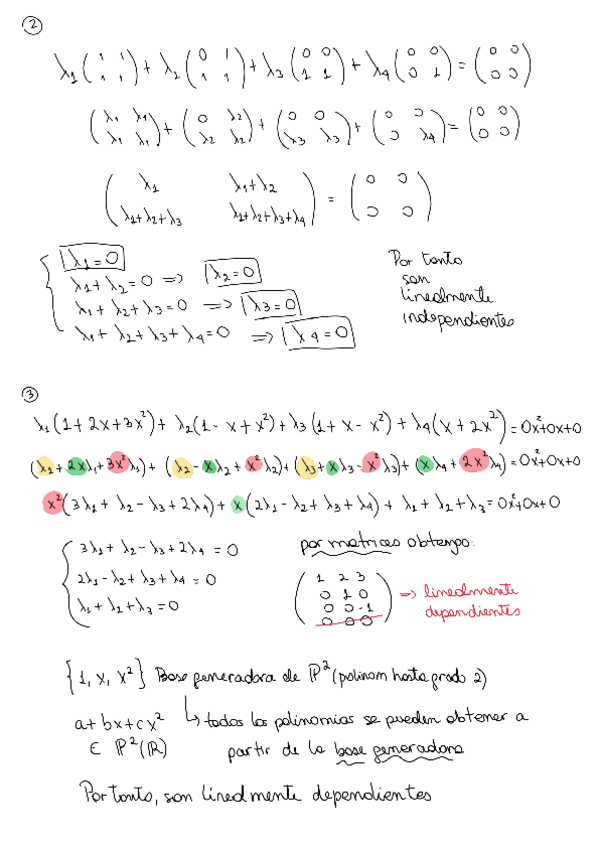 ②
λ1 ( 1 1 / 1 1 ) + λ2 ( 0 1 / 1 1 ) + λ3 ( 0 0 / 1 1 ) + λ4 ( 0 0 / 0 1 ) = ( 0 0 / 0 0 )
( λ1 λ1 / λ1 λ1 ) + ( 0 λ2 / λ2 λ2 ) + ( 0 0 / λ3 λ3 ) + ( 0 0 / 0 λ4 ) = ( 0 0 / 0 0 )
( λ1 λ1+λ2 / λ1+λ2+λ3 λ1+λ2+λ3+λ4 ) = ( 0 0 / 0 0 )
λ1 = 0
λ1 + λ2 = 0 => λ2 = 0
λ1 + λ2 + λ3 = 0 => λ3 = 0
λ1 + λ2 + λ3 + λ4 = 0 => λ4 = 0
Por tanto
son
linealmente
independientes
③
λ1 (1 + 2x + 3x²) + λ2 (1 - x + x²) + λ3 (1 + x - x²) + λ4 (x + 2x²) = 0x²+0x+0
(λ1 + 2xλ1 + 3x²λ1) + (λ2 - xλ2 + x²λ2) + (λ3 + xλ3 - x²λ3) + (xλ4 + 2x²λ4) = 0x²+0x+0
x² (3λ1 + λ2 - λ3 + 2λ4) + x (2λ1 - λ2 + λ3 + λ4) + λ1 + λ2 + λ3 = 0x²+0x+0
3λ1 + λ2 - λ3 + 2λ4 = 0
2λ1 - λ2 + λ3 + λ4 = 0
λ1 + λ2 + λ3 = 0
por matrices obtengo:
( 1 2 3 / 0 1 0 / 0 0 -1 / 0 0 0 ) => linealmente
dependientes
{1, x, x²} Base generadora de ℙ² (polinom hasta grado 2)
a + bx + cx² ↳ todos los polinomios se pueden obtener a
∈ ℙ²(ℝ) partir de la base generadora
Por tanto, son linealmente dependientes